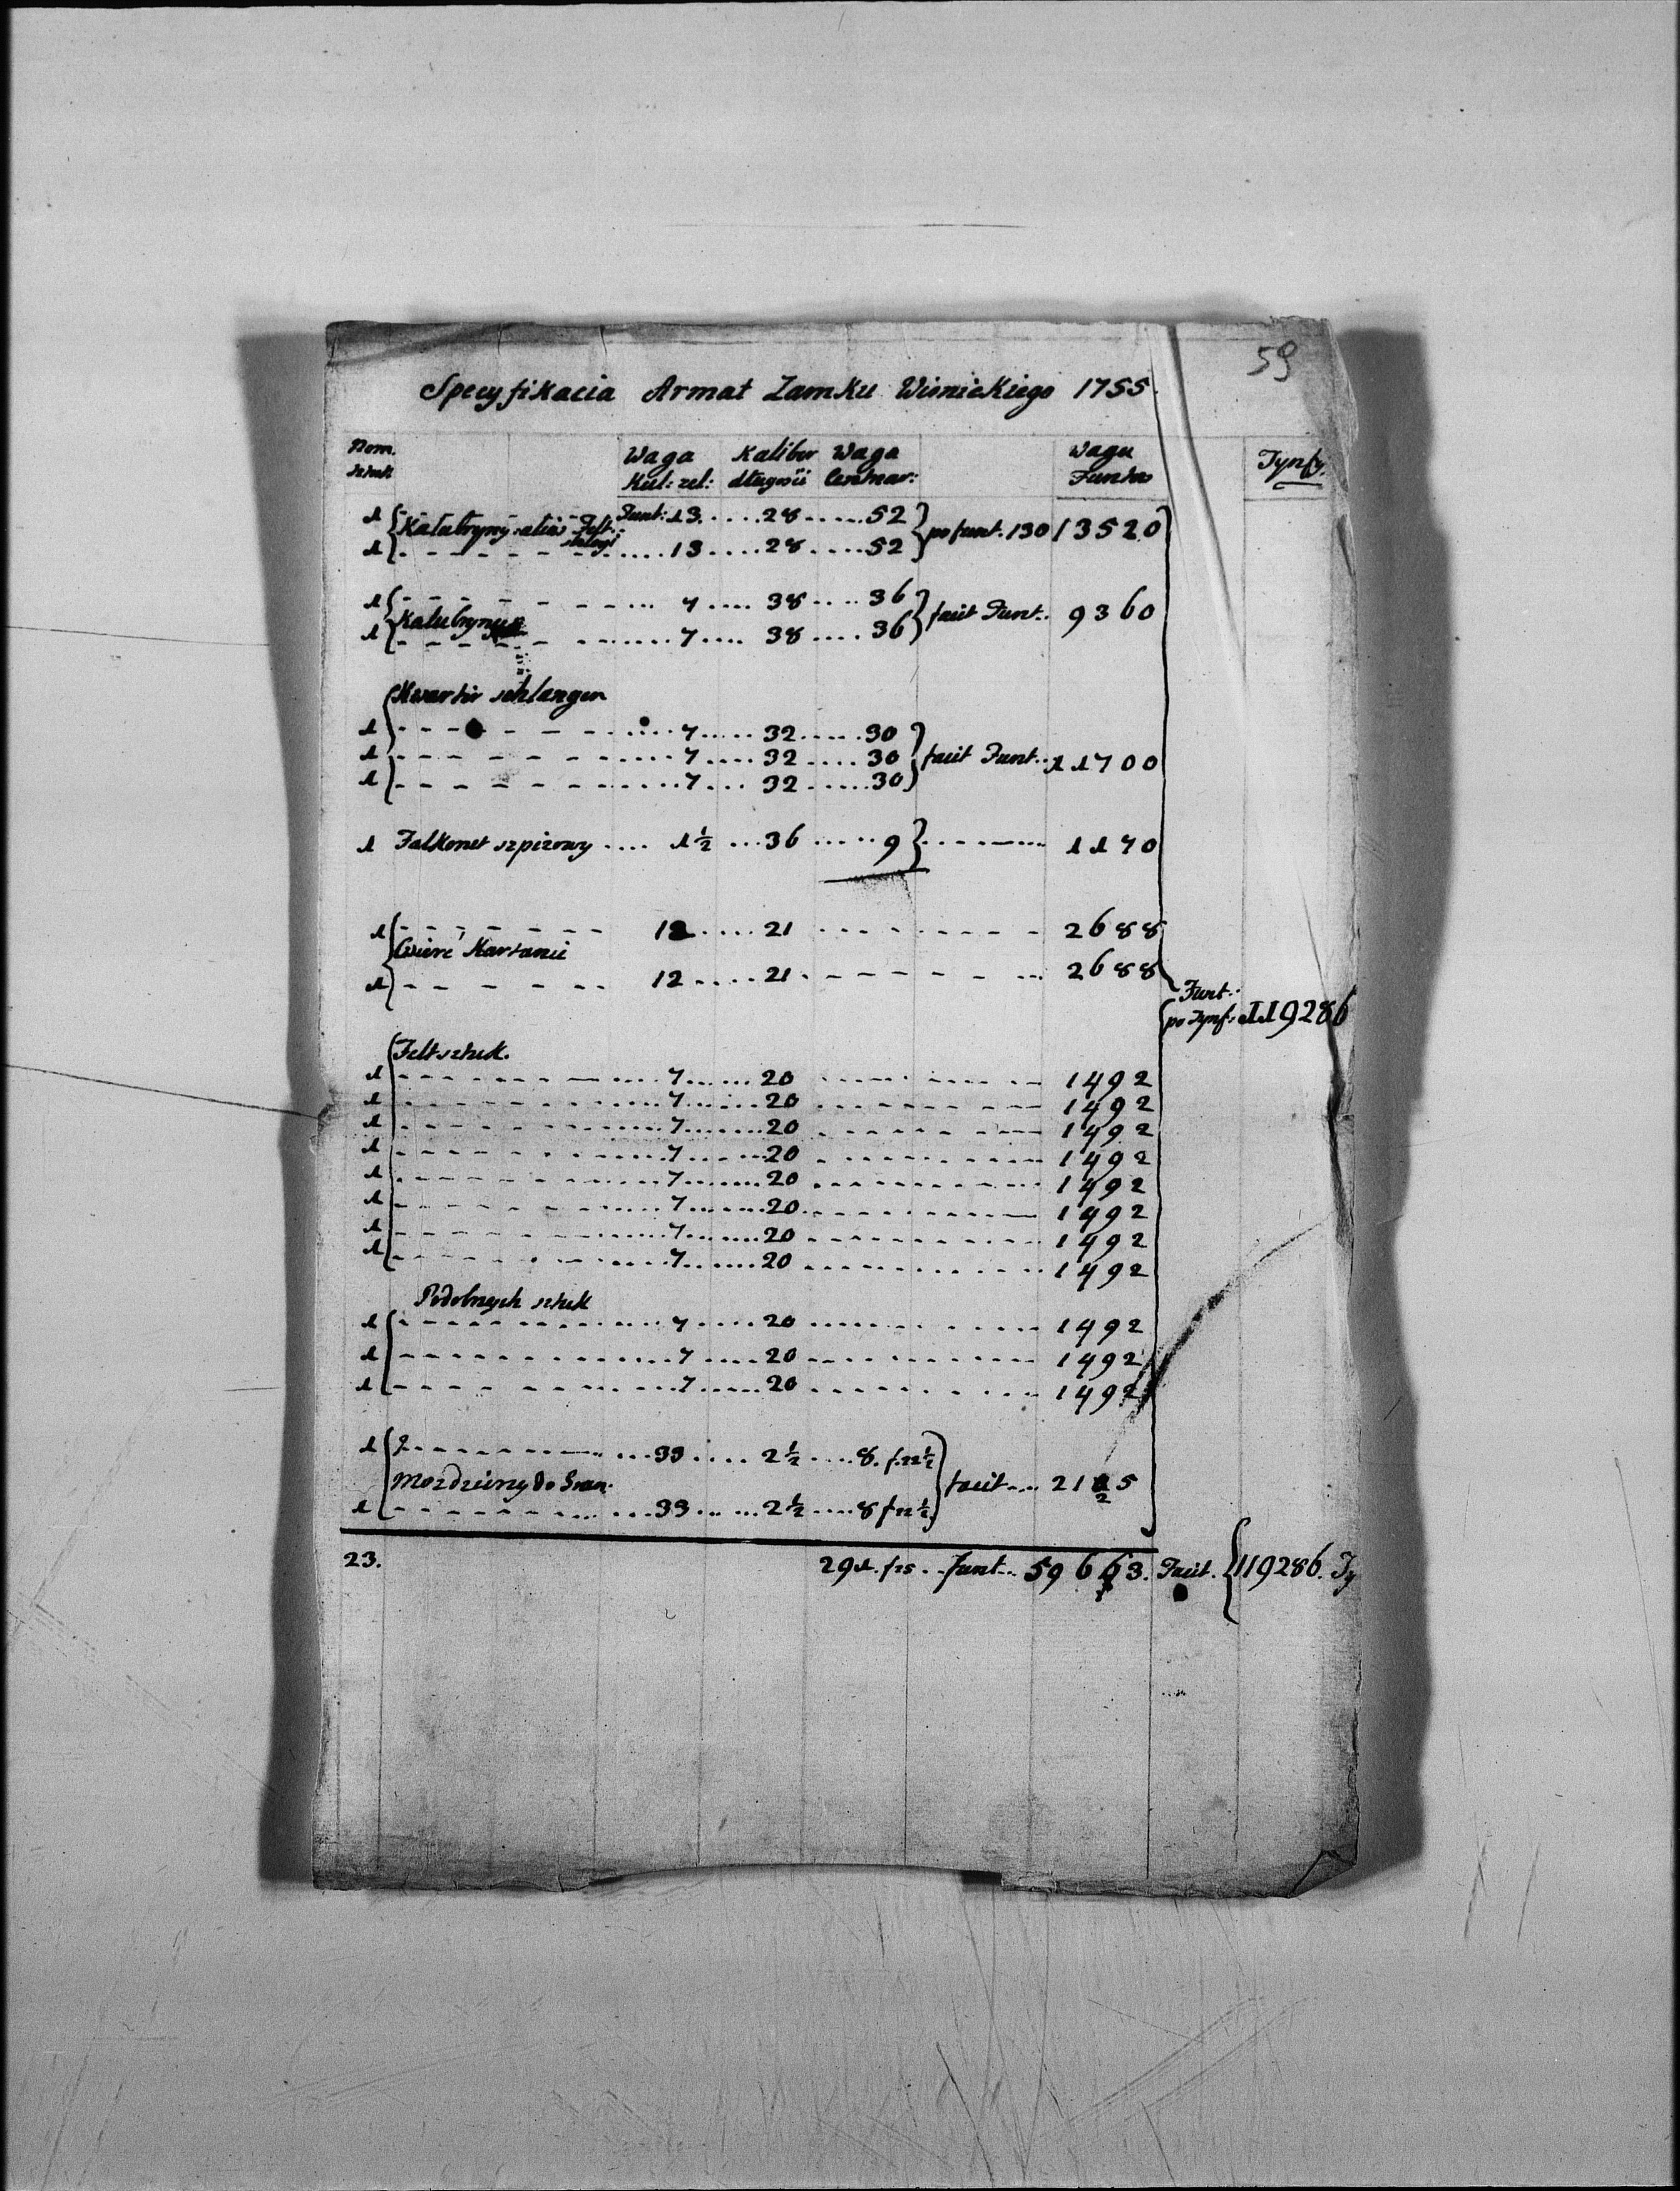 59
Specyfikacia Armat Zamku Wisnickiego 1755.
Num. Waga Kalibr Waga Waga Tynfy.
sztuk Kul: zel: długości Centnar: Funtow
1 Funt: 13 .... 28 ..... 52
Kalubryny alias Felt: po funt. 130 13520
1 szlagi 13 .... 28 .... 52
1 7 .... 38 .... 36
Kalubryny facit Funt.. 9360
1 7 .... 38 .... 36
Kwartir schlangen
1 7 ..... 32 ...... 30
1 7 .... 32 .... 30 facit Funt... 11700
1 7 ... 32 ...... 30
1 Falkonet szpizowy .... 1½ ... 36 ...... 9 1170
1 12 .... 21 2688
Cwierć Kartanii
1 12 .... 21 2688
Funt..
po Tynf: 2 119286
Felt sztuk.
1 7 ...... 20 1492
1 7 ...... 20 1492
1 7 ...... 20 1492
1 7 ...... 20 1492
1 7 ...... 20 1492
1 7 ...... 20 1492
1 7 ...... 20 1492
1 7 ...... 20 1492
Podobnych sztuk
1 7 ..... 20 1492
1 7 ..... 20 1492
1 7 ...... 20 1492
1 33 .... 2½ .... 8. f. 22½
Mozdzierzy do Gran. facit ... 2125
1 33 ..... 2½ .... 8 f 22½
23. 291. f 25 .. funt... 59663. Facit. 119286. Ty